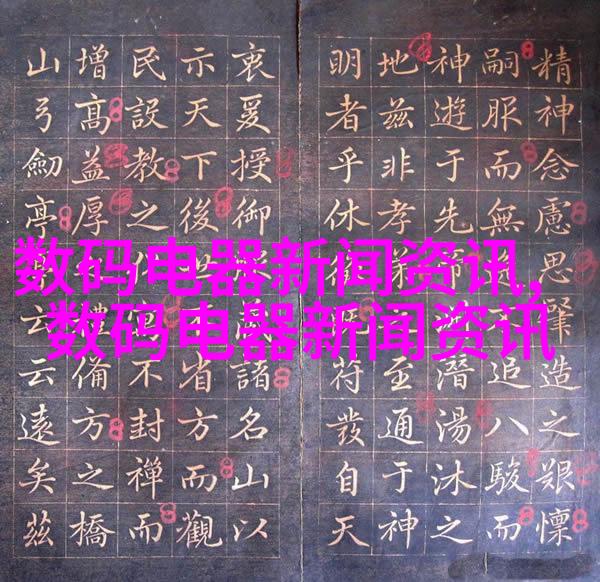 数码电器新闻资讯,
数码电器新闻资讯
精神念慮思肇造之艱懍
嗣服而無追八駿而
神遊于先潛湯沐之
地茲非孝至通于神
明者乎休符發自天
衷爰授御諸名山以
示天下後省方而觀
民設教之不封禪而
增高益厚禮方之橋
山弓劍亭云云遠矣茲